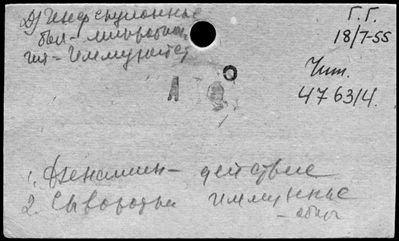 Д) Инфекционные
бол - микробиол.
гия - Иммунитет
Г. Г.
18/7-55
Чит.
476314.
А
1. Фенамин - действие
2. Сыворотки иммунные
- общ